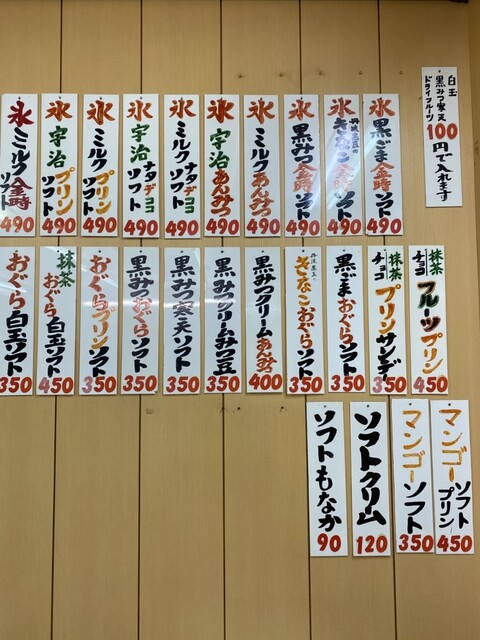 白玉
黒みつ寒天
ドライフルーツ
100円で入れます
氷 黒ごま金時ソフト 490
氷 丹波黒豆の
きなこ金時ソフト 490
氷 黒みつ金時ソフト 490
氷 ミルクあんみつ 490
氷 宇治あんみつ 490
氷 ミルクナタデココソフト 490
氷 宇治ナタデココソフト 490
氷 ミルクプリンソフト 490
氷 宇治プリンソフト 490
氷 ミルク金時ソフト 490
抹茶
チョコ
フルーツプリン 450
抹茶
チョコ
プリンサンデー 350
黒ごまおぐらソフト 350
丹波黒豆の
きなこおぐらソフト 350
黒みつクリームあんみつ 400
黒みつクリームみつ豆 350
黒みつ寒天ソフト 350
黒みつおぐらソフト 350
おぐらプリンソフト 350
抹茶おぐら白玉ソフト 450
おぐら白玉ソフト 350
マンゴーソフトプリン 450
マンゴーソフト 350
ソフトクリム 120
ソフトもなか 90